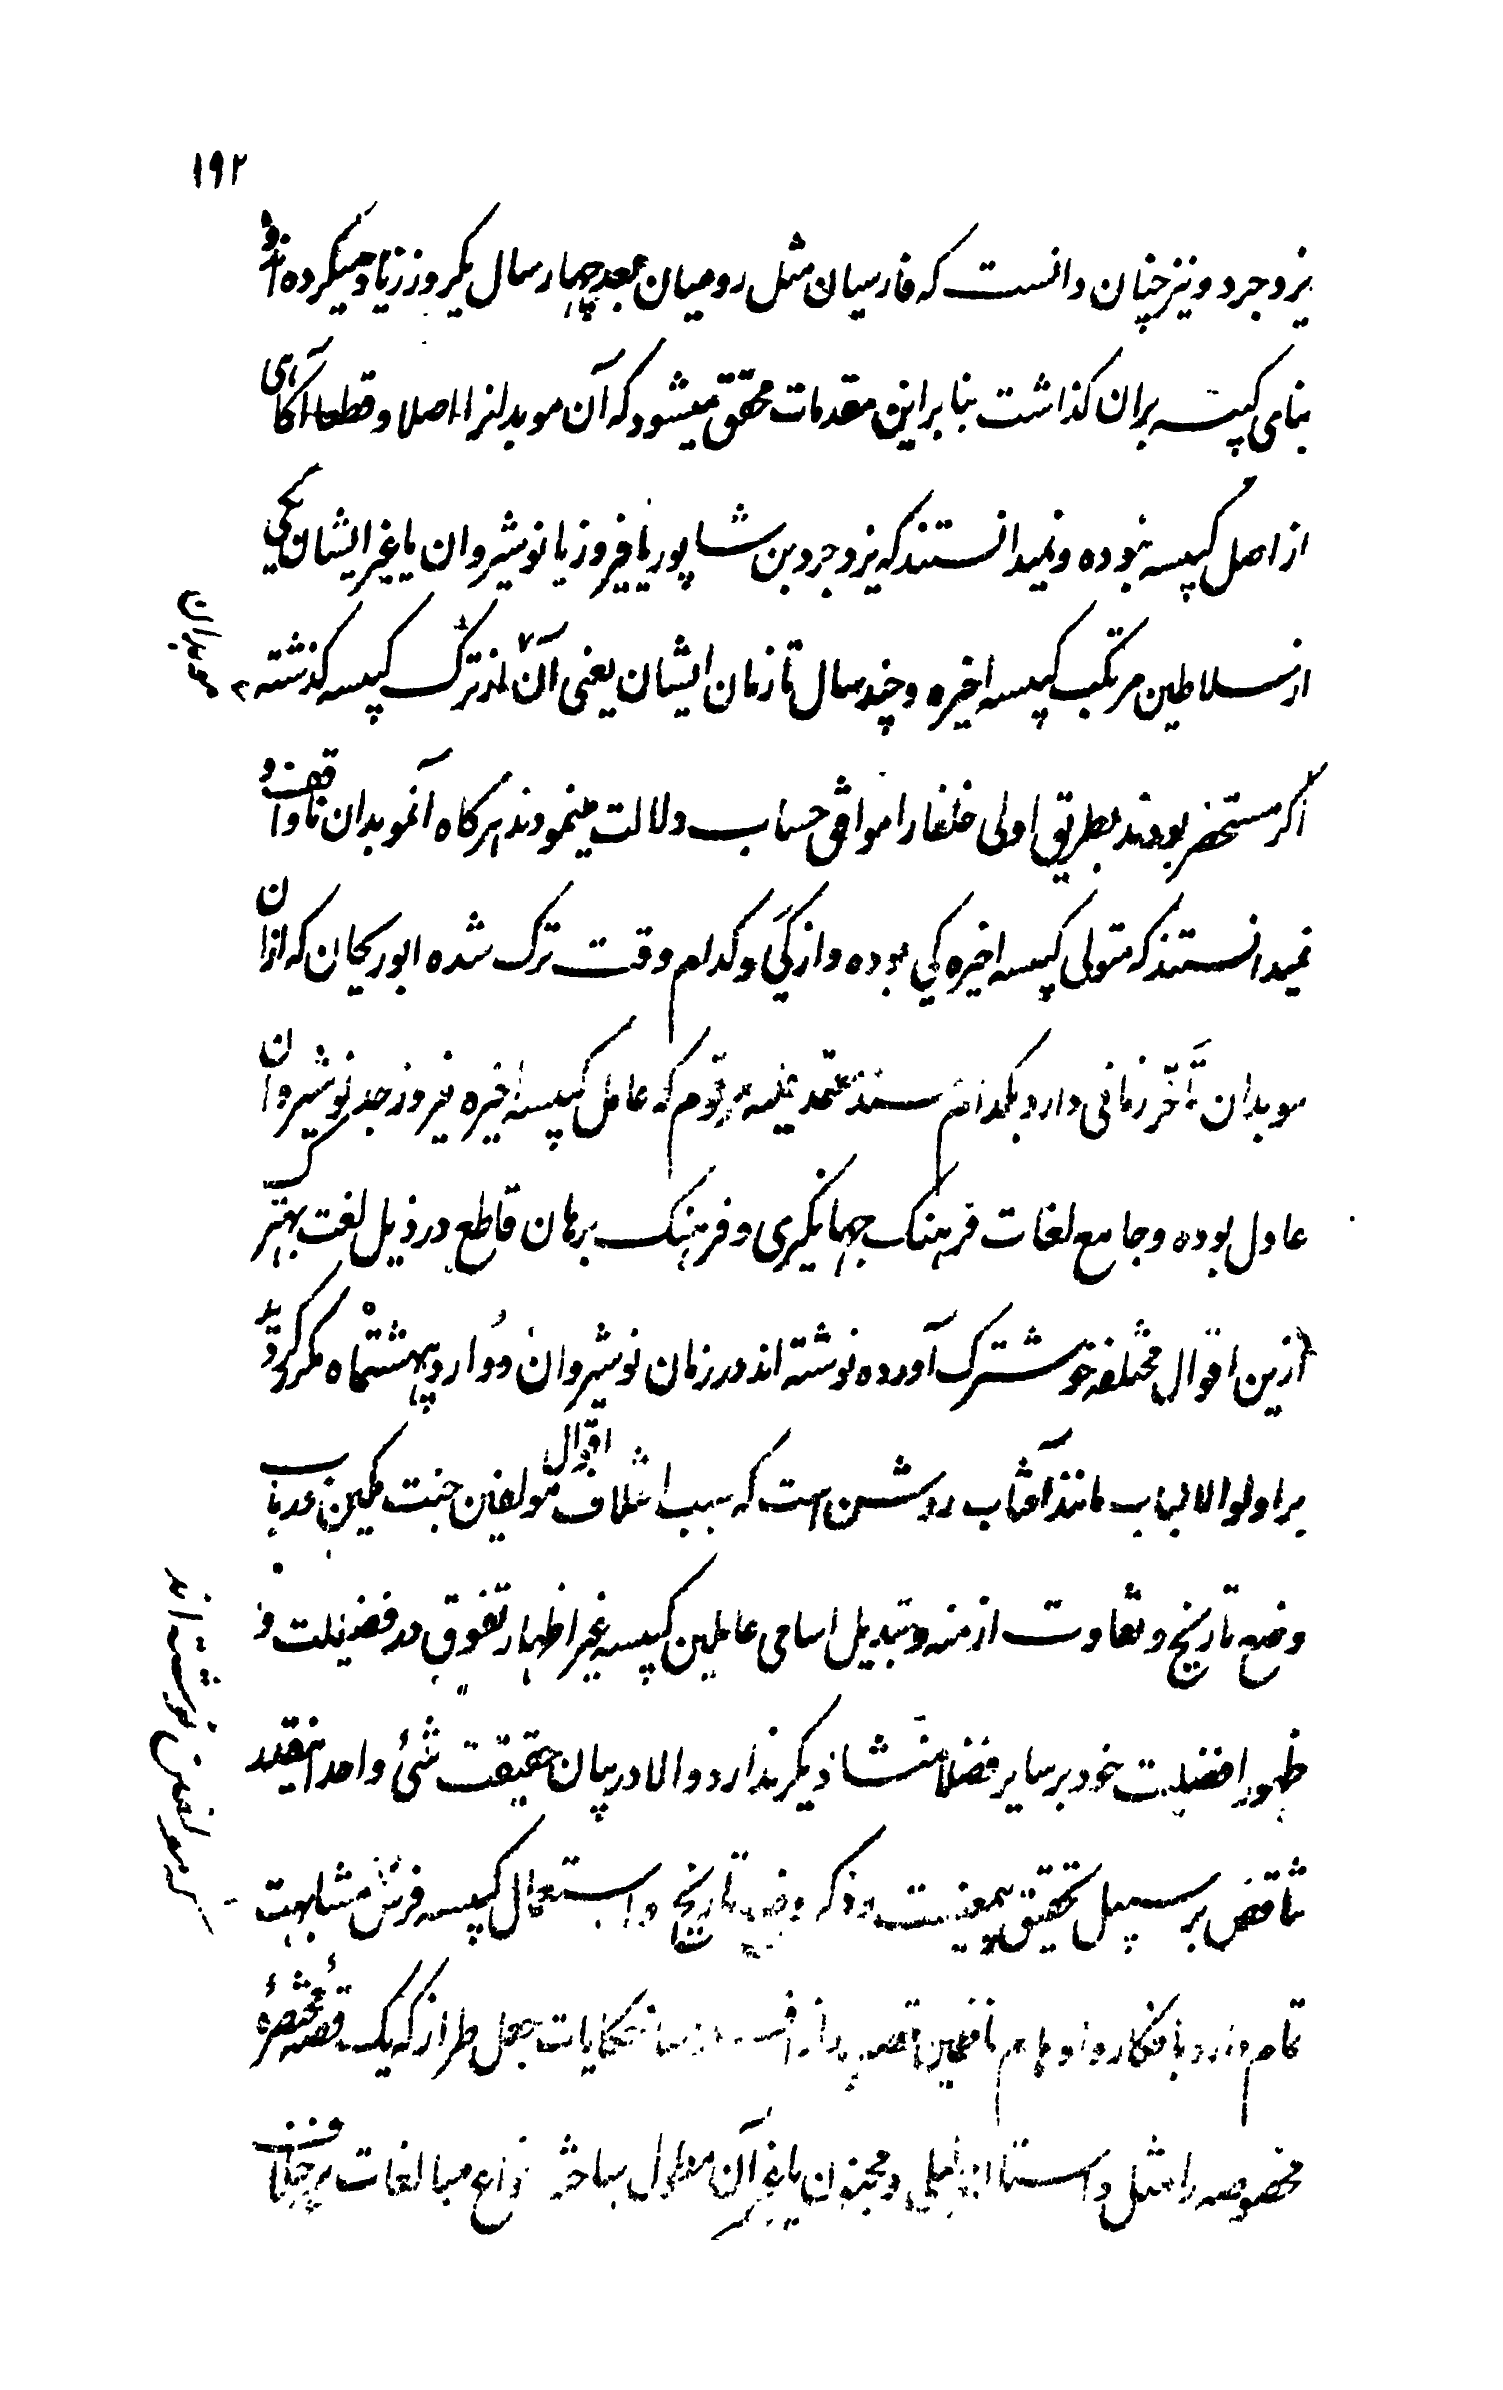 ۱۹۲
یزدجرد و نیز چنان دانست که فارسیان مثل رومیان بعد چهار سال یکروز زیاد میکرده اند و
بنای کبیسه بران کذاشت بنا براین مقدمات محقق میشود که آن موبدانرا اصلا و قطعا آکاهی
از اصل کبیسه نبوده و نمیدانستند که یزدجرد بن شاپور یا فیروز یا نوشیروان یا غیر ایشان یکی
از سلاطین مرتکب کبیسه اخیره و چند سال تا زمان ایشان یعنی آن از ترک کبیسه کذشته
موبدان
اکر مستحضر بودند بطریق اولی خلفا را موافق حساب دلالت مینمودند هرکاه آنموبدان ناواقف و
نمیدانستند که متولی کبیسه اخیره کی بوده و از کی و کدام وقت ترک شده ابوریحان که ازان
موبدان تأخر زمانی دارد بکدام سند معتمد علیه مرقوم که عامل کبیسه اخیره فیروز جد نوشیروان
عادل بوده و جامع لغات فرهنک جهانکیری و فرهنک برهان قاطع در ذیل لغت بهترک
ازین اقوال مختلفه خوشترک آورده نوشته اند در زمان نوشیروان دو اردیبهشتماه مکرر کردید
بر اولوالالباب مانند آفتاب روشن است که سبب اختلاف اقوال مولفین جنت مکین در باب
وضع تاریخ و تفاوت ازمنه و تبدیل اسامی عاملین کبیسه غیر اظهار تفوق در فضیلت و
ظهور افضلیت خود بر سایر فضلا منشاء دیکر ندارد والا در بیان حقیقت شیء واحد اینقدر
که مولفین نوشته اند
تناقض بر سبیل تحقیق بیمعنیست و ذکر وضع تاریخ و استعمال کبیسه فرس مشابهت
تام دارد بافکار و اوهام ناظمین قصه حکایات جعل طراز که یک قصه مختصرهٔ
مخصوصه را مثل داستان لیلی و مجنون یا غیر آن مطول ساخته انواع مبالغات